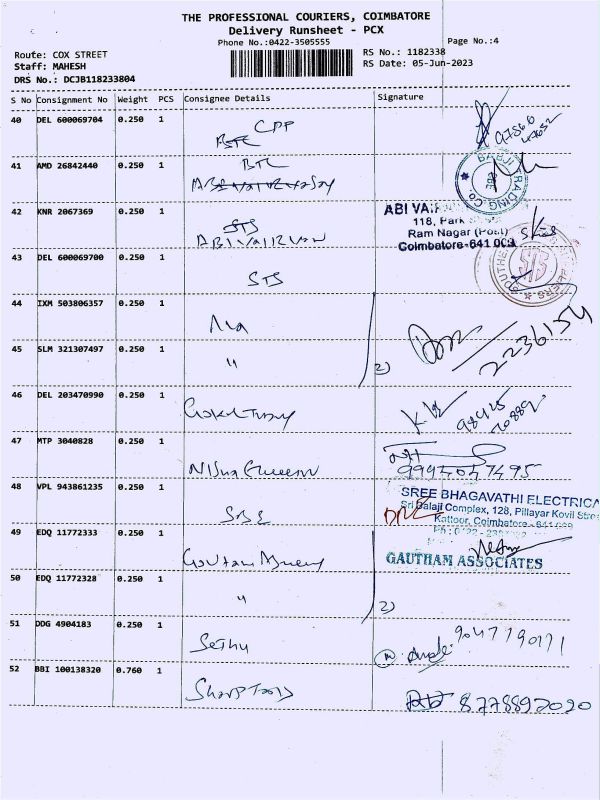 THE PROFESSIONAL COURIERS, COIMBATORE
Delivery Runsheet - PCX
Phone No.:0422-3505555
Page No.:4
Route: COX STREET
RS No.: 1182338
Staff: MAHESH
RS Date: 05-Jun-2023
DRS No.: DCJB118233804
S No Consignment No Weight PCS Consignee Details Signature
40 DEL 600069704 0.250 1 CPP
41 AMD 26842440 0.250 1 BTL
BABJI TRADING CO
42 KNR 2067369 0.250 1 STS
118, Park
Ram Nagar (Post)
Coimbatore-641 009
43 DEL 600069700 0.250 1 STS
STS
44 IXM 503806357 0.250 1
45 SLM 321307497 0.250 1 "
2)
2236154
46 DEL 203470990 0.250 1
47 MTP 3040828 0.250 1
48 VPL 943861235 0.250 1 SBE
SREE BHAGAVATHI ELECTRICA
Sri Balaji Complex, 128, Pillayar Kovil Stre
Kattoor, Coimbatore
49 EDQ 11772333 0.250 1
GAUTHAM ASSOCIATES
50 EDQ 11772328 0.250 1 "
2)
51 DDG 4904183 0.250 1 Sethu
9047790171
52 BBI 100138320 0.760 1 Sharp Tools
8778892020